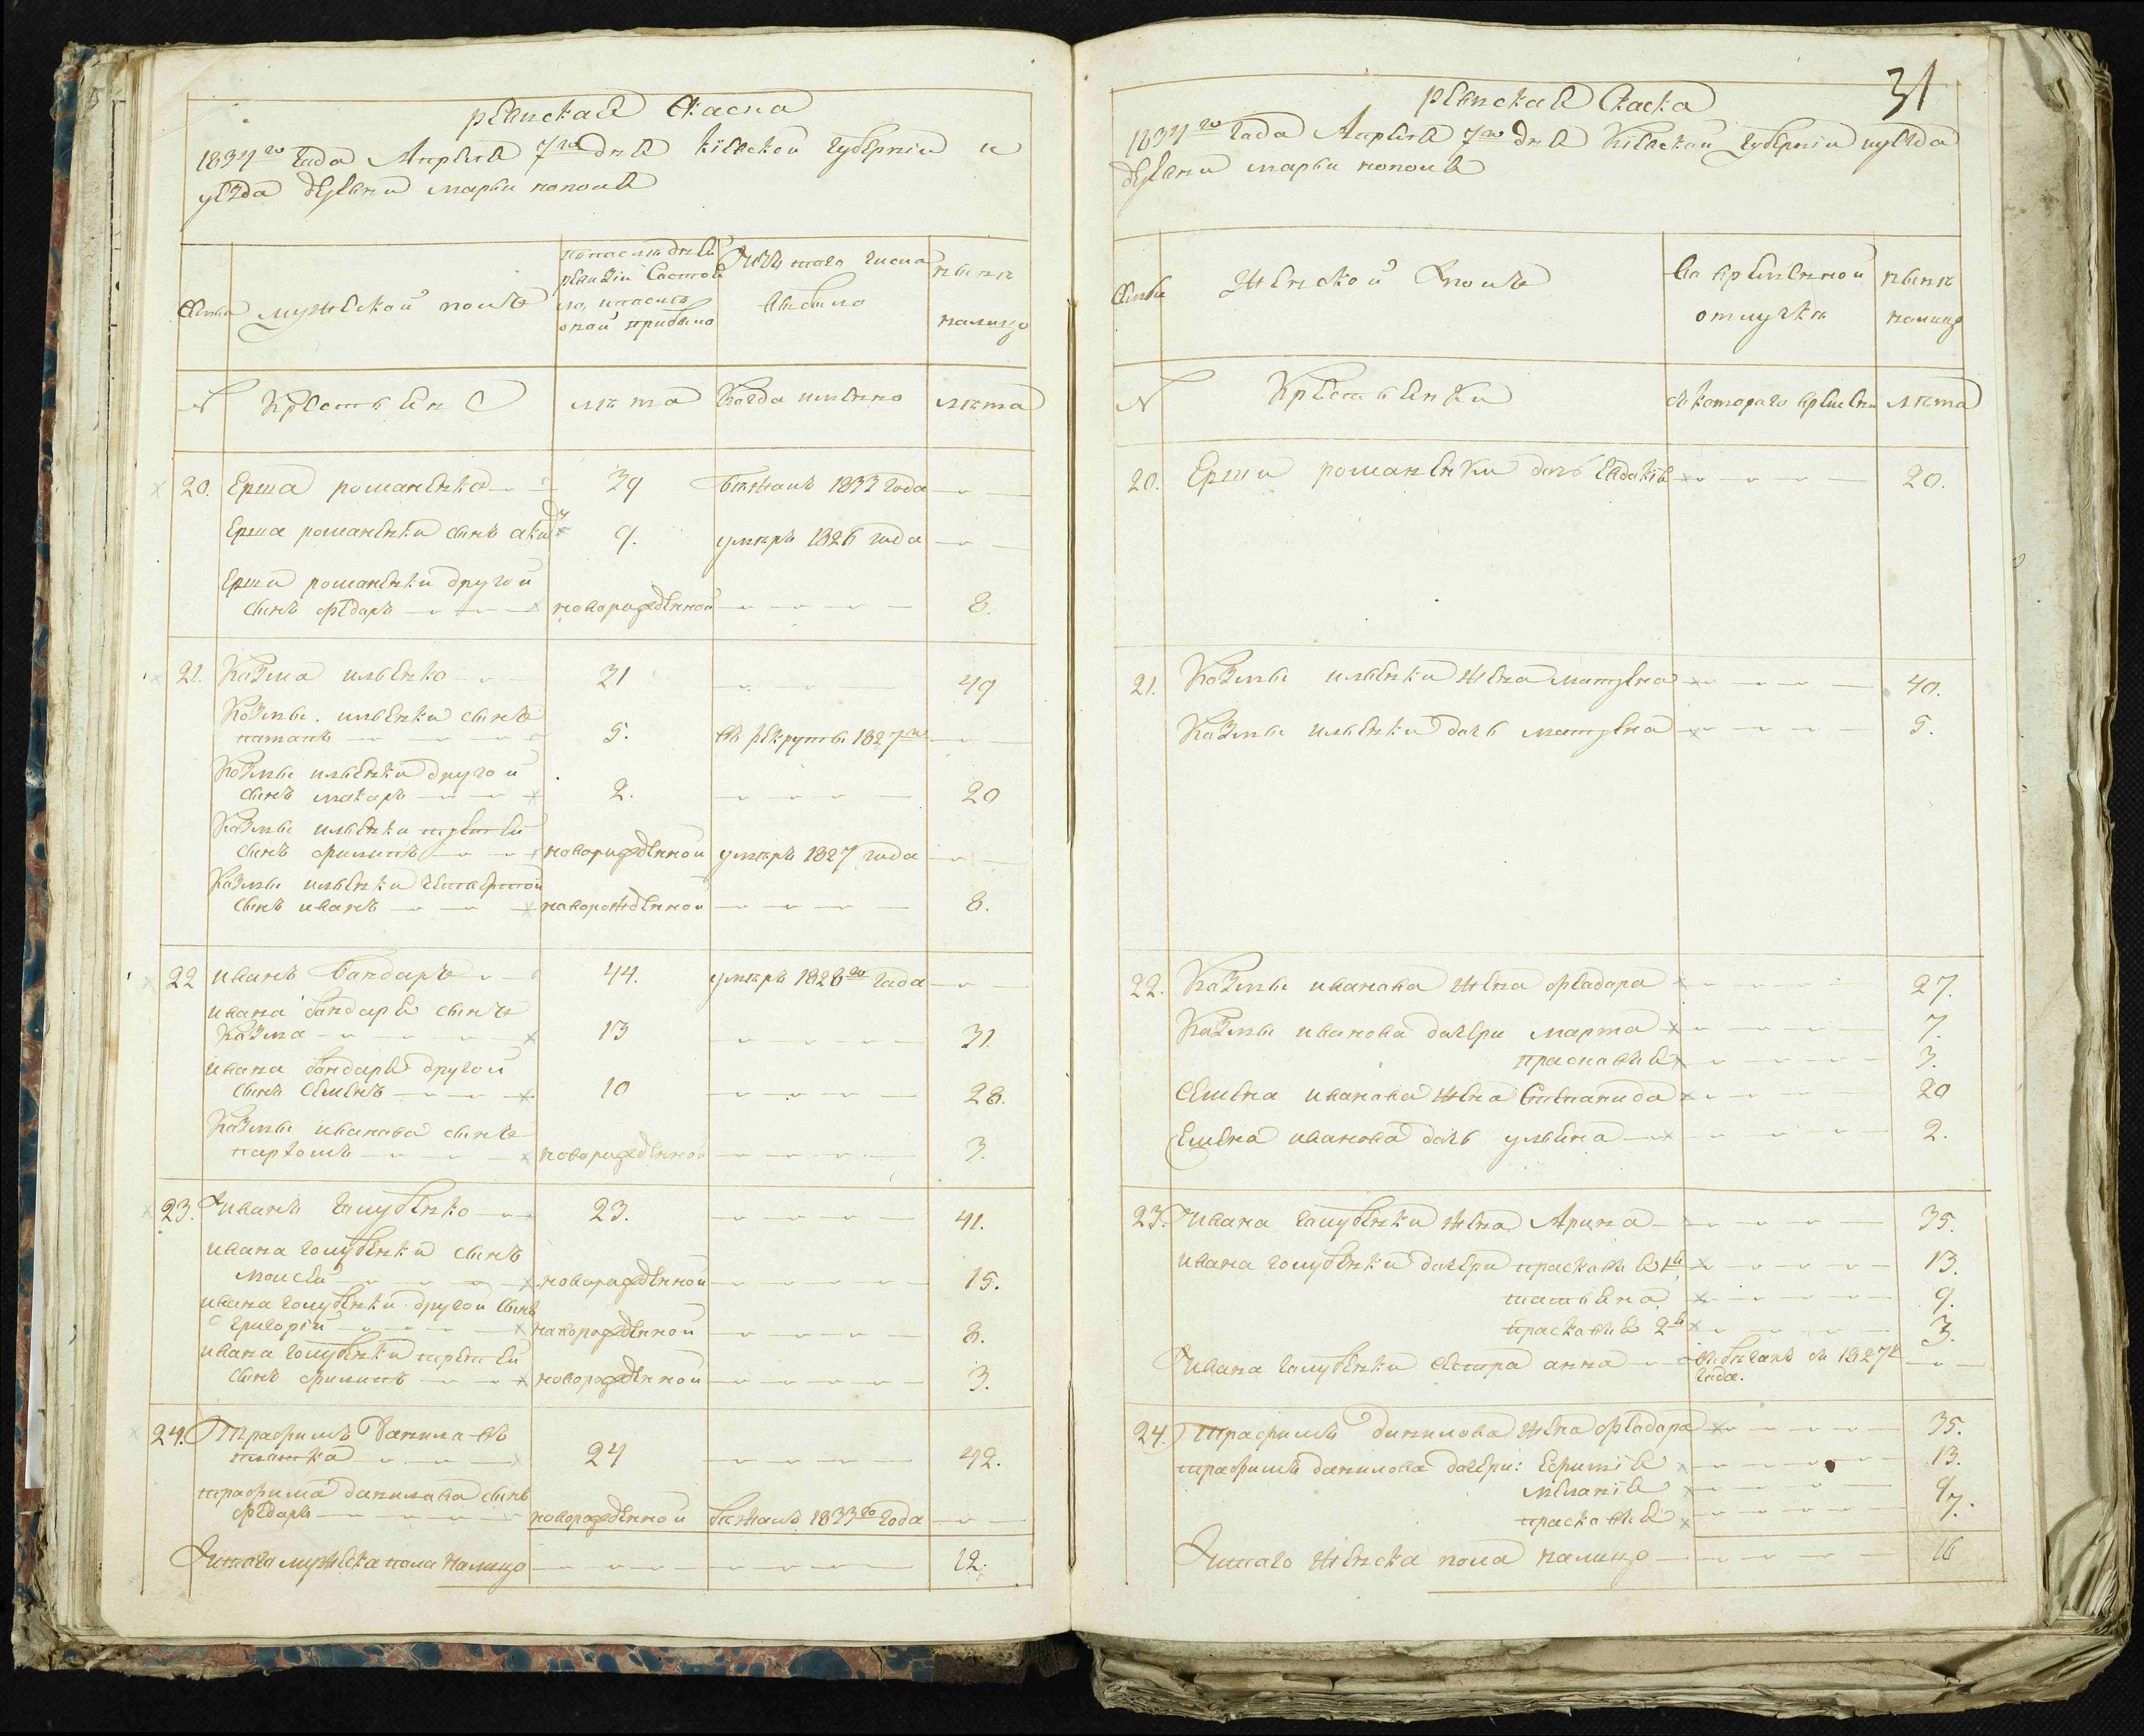 ревиская скаска
1834го года Апреля 7го дня Кіевской губерніи и
уезда деревни марьи нополя
семьи
мужескои полъ
попаследнеи
ревизіи Састоя
ло, ипаслѣ
онои прибыло
Изъ таго числа
выбыло
нынѣ
налицо
№
Крестьяне
лѣта
Когда именно
лѣта
20. Ерма романенко 39 бѣжалъ 1833 года
Ерма романенки сынъ 9. умѣръ 1826 года
Ерми романенки другои
сынъ фёдаръ новораждённои 8.
21. Козма ильенко 31 49
Козмы ильенки сынъ
патапъ 5. въ рекруты 1827го
Козмы ильенки другои
сынъ макаръ 2. 20
Козмы ильенки третеи
сынъ филипъ новорождённои умѣръ 1827 года
Козмы ильенки четвертои
сынъ иванъ наворожденнои 8.
22 иванъ бандарь 44. умѣръ 1826го года
ивана бандаря сынъ
Козма 13 31
ивана бандаря другои
сынъ семенъ 10 28.
Козмы иванова сынъ
пархомъ новорожденнои 3.
23. Иванъ галубенко 23. 41.
ивана голубенки сынъ
моисеи новорожденнои 15.
ивана голубенки другои сынъ
григорѣи наворожденнои 8.
ивана голубенки третеи
сынъ филипъ новорожденнои 3.
24. Трафимъ Данила въ
24 42.
трафима данилава сынъ
фёдаръ новорожденнои бѣжалъ 1833го года
Итого мужеска пола налицо 12.
31
ревиская скаска
1834го года Апреля 7го дня Кіевскай губерніи иуезда
деревни марьи нополя
семьи
Женскои полъ
Во временнои
отлучкѣ
нынѣ
налицо
№
Крестьянки
съ котораго времени
лѣта
20. Ерми романенки дочь Евдакія 20.
21. Козмы ильенки жена матрена 40.
Козмы ильенки дочь матрена 5.
22. Козмы иванава жена фёадара 27.
Козмы иванова дачери марта 7.
праскавья 3.
Семена иванава жена 20
Семена иванова дочь ульяна 2.
23. Ивана галубенки жена Арина 35.
ивана голубенки дачери праскавья 1я 13.
татьяна 9.
праскавья 2я 3.
Ивана галубенки сестра анна съ 1827го
года.
24. Трафима данилова жена фёадара 35.
трафима данилова дачери: Ефимія 13.
меланія 9.
праскавья 7.
Итаго женска пола налицо 16